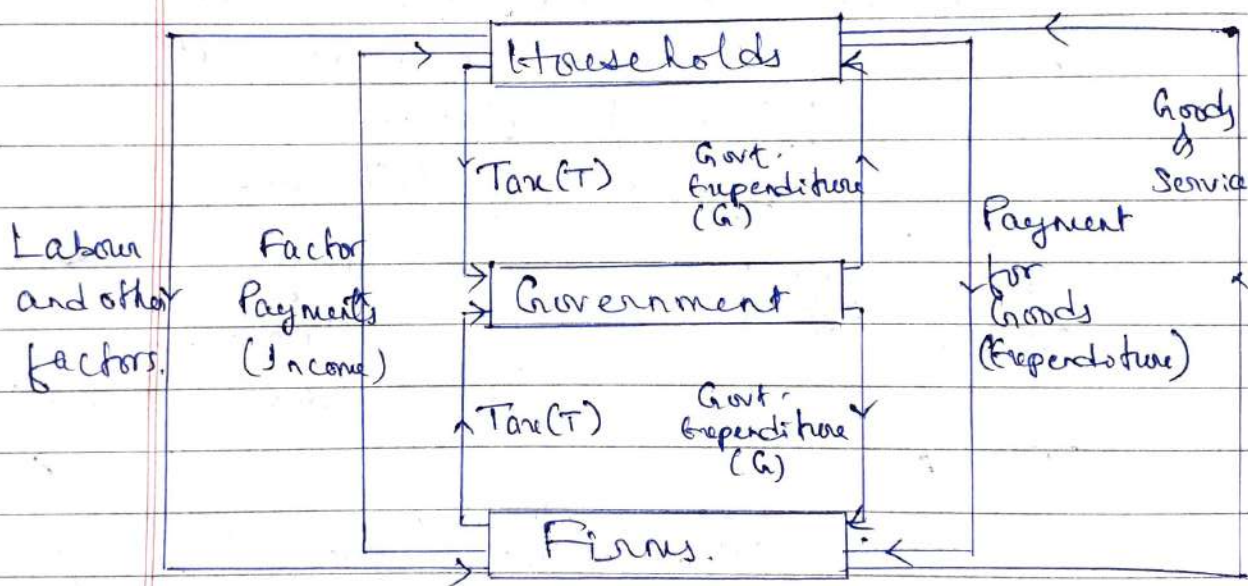 Households
Goods
&
Service
Tax(T)
Govt.
Expenditure
(G)
Labour
and other
factors.
Factor
Payments
(Income)
Payment
for
Goods
(Expenditure)
Government
Tax(T)
Govt.
Expenditure
(G)
Firms.